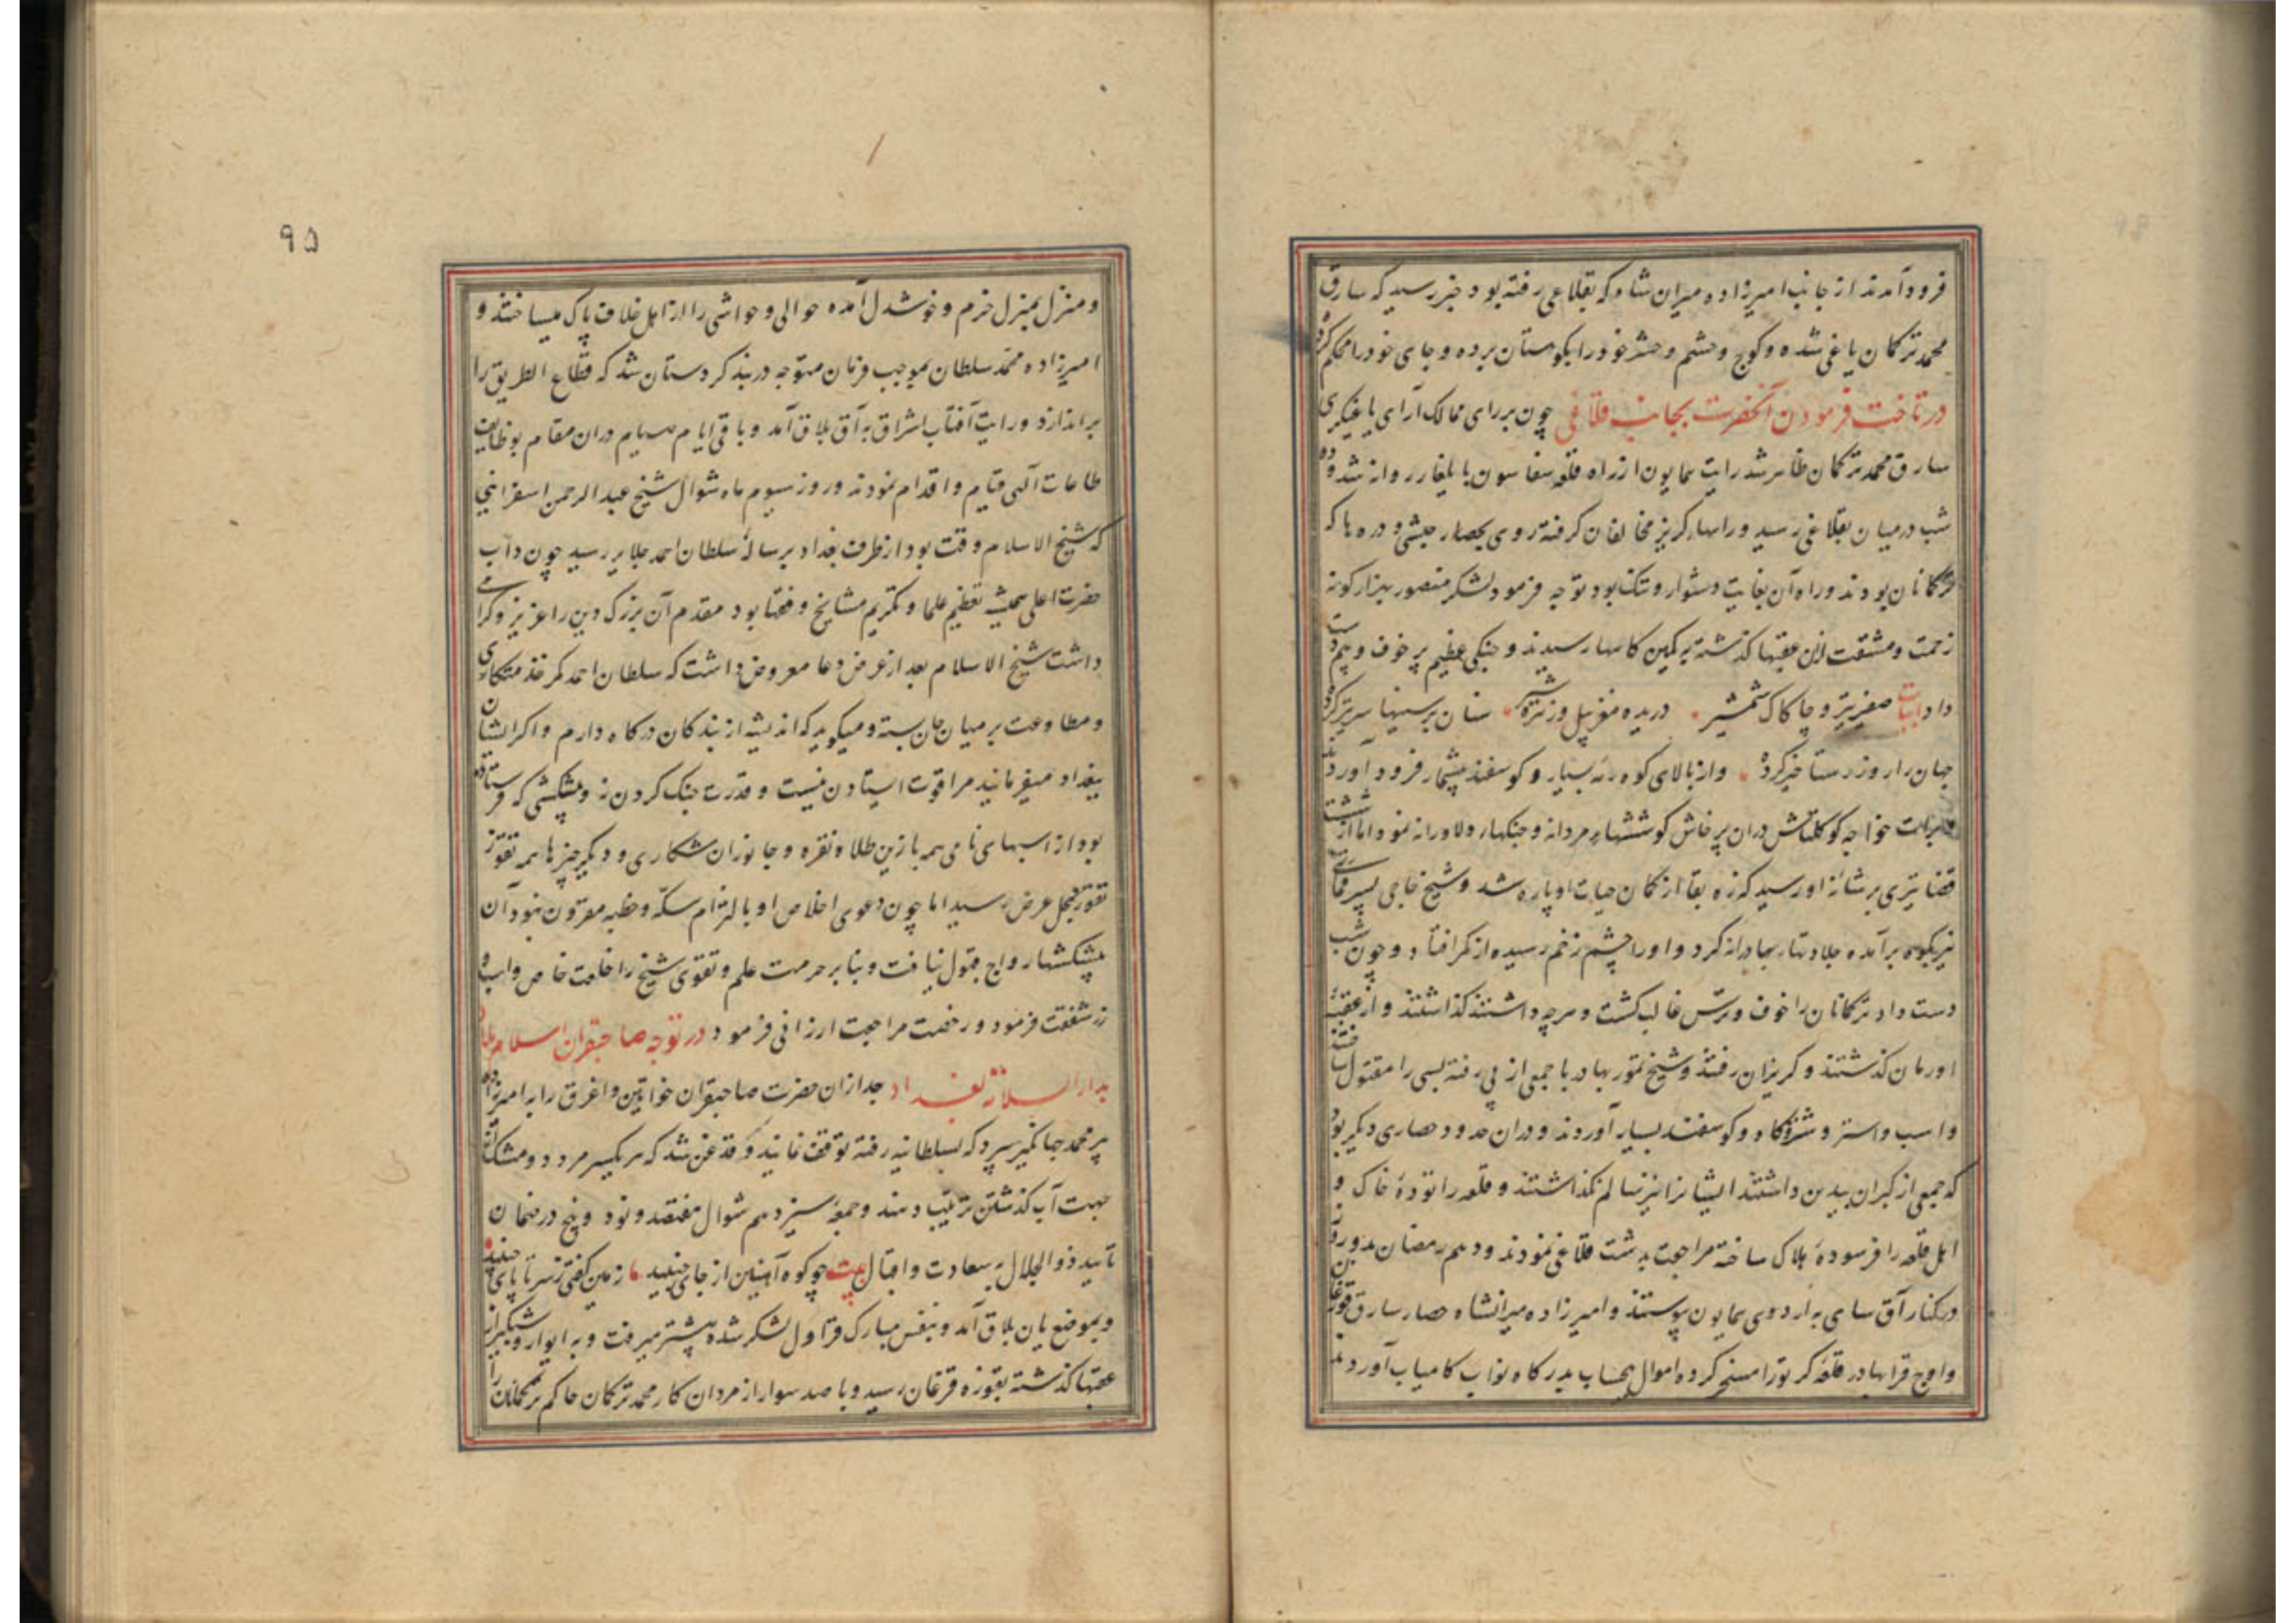 فرود آمدند از جانب امیرزاده میران شاه که بقلاغی رفته بود خبر رسید که سارق
محمد ترکمان یاغی شده و کوچ و حشم و حشر خود را بکوهستان برده و جای خود را محکم کرده
در تاخت فرمودن آنحضرت بجانب قلاغی چون بر رای ممالک آرای یاغیگری
سارق محمد ترکمان ظاهر شد رایت همایون از راه قلعه سفاسون بایلغار روان شد و ده
شب در میان بقلاغی رسید و راهها گریز مخالفان گرفته روی بحصار حبشی و دره ها که
ترکمانان بودند و راه آن بغایت دشوار و تنک بود توجه فرمود لشکر منصور بهزار گونه
زحمت و مشقت ازان عقبها گذشته به کمین کاهها رسیدند و جنکی عظیم پر خوف و بیم دست
داد ابیات صفیر تیر و چاکاک شمشیر دریده مغز پیل و زهره شیر سنان بر سینها سر تیز کرده
جهان را روز رستاخیز کرده و از بالای کوه رمه بسیار و کوسفند بیشمار فرود آوردند
خواجه کوکلتاش دران پرخاش کوششهاء مردانه و جنکهاء دلاورانه نمود اما از شست
قضا تیری بر شانه او رسید که زه بقا از کمان حیات او پاره شد و شیخ حاجی پسر قماری
نیز بکوه برآمده جلادتهاء بهادرانه کرد و او را چشم زخم رسیده از کمر افتاد و چون شب
دست داد ترکمانان را خوف و ترس غالب کشت و هرچه داشتند کذاشتند و از عقبه
اورمان کذشتند و کریزان رفتند و شیخ تمور بهادر با جمعی از پی رفته بسی را مقتول ساختند
و اسب و استر و شتر و کاو و کوسفند بسیار آوردند و دران حدود حصاری دیکر بود
که جمعی از کبران بیدین داشتند ایشانرا نیز سالم نکذاشتند و قلعه را تودهٔ خاک و
اهل قلعه را فرسودهٔ هلاک ساخته مراجعت بدشت قلاغی نمودند و دهم رمضان
در کنار آق سای به اردوی همایون پیوستند و امیرزاده میرانشاه حصار سارق قورغان
و اوج قرا بهادر قلعه کرتو را مسخر کرده اموال بیحساب بدرکاه نواب کامیاب آوردند
۹۵
و منزل بمنزل خرم و خوشدل آمده حوالی و حواشی را از اهل خلاف پاک میساختند و
امیرزاده محمد سلطان بموجب فرمان متوجه دربند کردستان شد که قطاع الطریق را
براندازد و رایت آفتاب اشراق به آق بلاق آمد و باقی ایام صیام دران مقام بوظایف
طاعات آلهی قیام و اقدام نمودند و روز سیوم ماه شوال شیخ عبد الرحمن اسفراینی
که شیخ الاسلام وقت بود از طرف بغداد برسالهٔ سلطان احمد جلایر رسید چون دآب
حضرت اعلی همیشه تعظیم علما و تکریم مشایخ و فقها بود مقدم آن بزرک دین را عزیز و کرامی
داشت شیخ الاسلام بعد از عرض دعا معروض داشت که سلطان احمد کمر خدمتکاری
و مطاوعت بر میان جان بسته و میکوید که اندیشه از بندکان درکاه دارم و اکر ایشان
بغداد میفرمایند مرا قوت استادن نیست و قدرت جنک کردن نه و پیشکشی که فرستاده
بود از اسبهای نامی همه با زین طلا و نقره و جانوران شکاری و دیکر چیزها همه تقوز
تقوز بمحل عرض رسید اما چون دعوی اخلاص او بالتزام سکه و خطبه مقرون نبود آن
پیشکشها رواج قبول نیافت و بنا بر حرمت علم و تقوی شیخ را خلعت خاص و اسب و
زر شفقت فرمود و رخصت مراجعت ارزانی فرمود در توجه صاحبقران اسلام پناه
بدار السلام بغداد بعد ازان حضرت صاحبقران خواتین و اغرق را به امیرزاده
پیر محمد جهانکیر سپرد که بسلطانیه رفته توقف نمایند و قدغن شد که هر یک سر مرد دو مشک
جهت آب کذشتن ترتیب دهند و جمعه سیزدهم شوال هفتصد و نود و پنج در ضمان
تأیید ذو الجلال به سعادت و اقبال بیت چو کوه آهنین از جای جنبید زمین کفتی ز سر تا پای جنبید
و بموضع یان بلاق آمد و بنفس مبارک قراول لشکر شده پیشتر میرفت و به ایوار و شبکیر از
عقبها کذشته بقوزه قرغان رسید و با صد سوار از مردان کار محمد ترکمان حاکم ترکمانان را